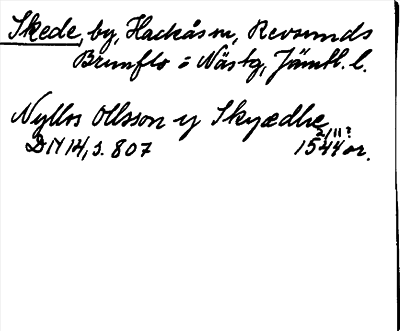 Skede, by, Hackås sn, Revsunds
Brunflo o Näs tg, Jämtl. l.
Nyllos Ollsson y Skyædhe
2/11 ?
DN 14, s. 807 1544 or.